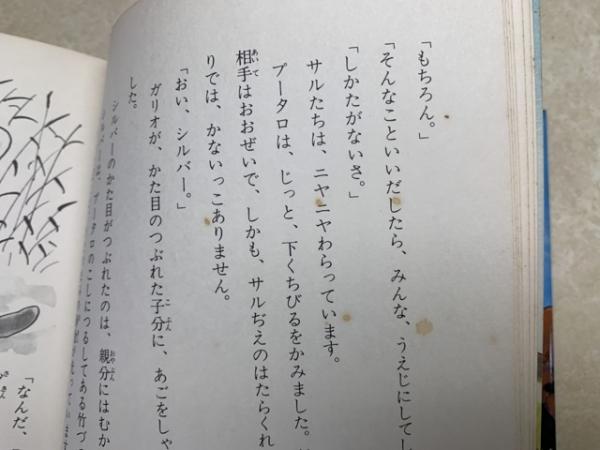 「もちろん。」
「そんなこといいだしたら、みんな、うえじにしてし
「しかたがないさ。」
サルたちは、ニヤニヤわらっています。
プータロは、じっと、下くちびるをかみました。
相手はおおぜいで、しかも、サルぢえのはたらくれ
りでは、かないっこありません。
「おい、シルバー。」
ガリオが、かた目のつぶれた子分に、あごをしゃ
した。
シルバーのかた目がつぶれたのは、親分にはむか
シルバーは、プータロのこしにつるしてある竹づ
「なんだ、